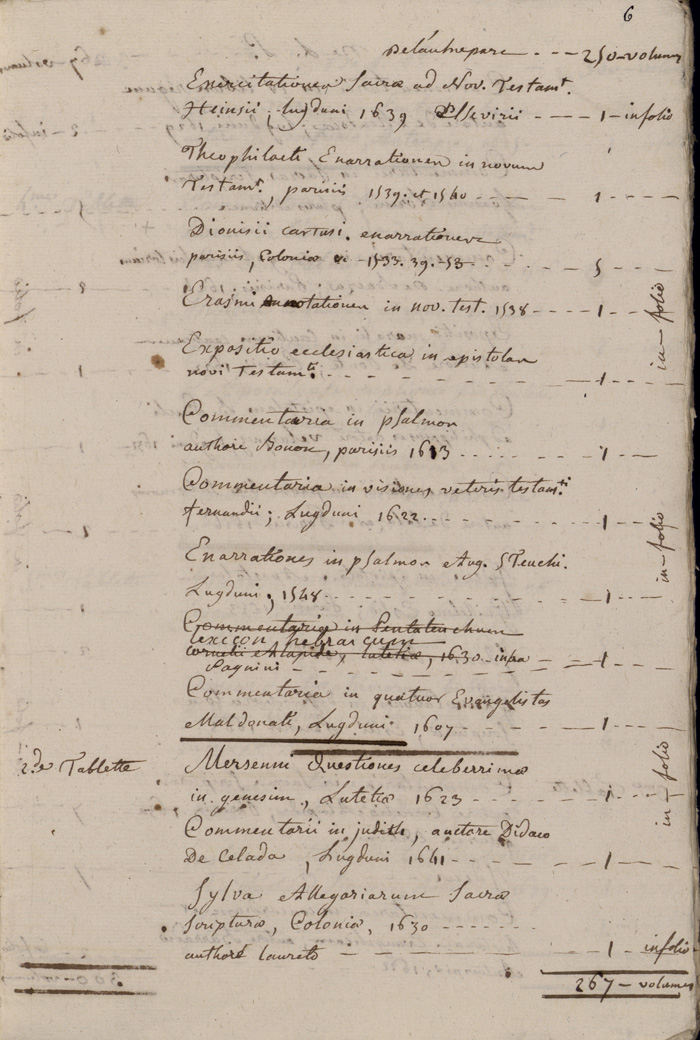 6
De l'autre part --- 250 - volumes
Exercitationes Sacræ ad Nov. Testam^t.
Heinsii, Lugduni 1639 Elsevirii ---- 1 - infolio
Theophilacti Enarrationes in novum
Testam^t., parisiis 1539. et 1540 ---- 1 --
Dionisii cartusi. enarrationes
parisiis, Coloniæ 1533. 39. 53 --- 5 --
Erasmi annotationes in nov. test. 1538 --- 1 --
in-folio
Expositio ecclesiastica in epistolas
novi Testam^ti. ------ 1 --
Commentaria in psalmos
authore, parisiis 1613 .... 1 --
Commentaria in visiones veteris testam^ti.
fernandii; Lugduni 1622 ---- 1 --
in-folio
Enarrationes in psalmos Aug. Steuchi.
Lugduni, 1548 ------ 1 --
Commentaria in Pentateuchum
lexicon hebraicum
cornelii a lapide, lutetiæ, 1630 - infra -- 1 --
Pagnini -----
Commentaria in quatuor Evangelistas
Maldonati, Lugduni 1607 --- 1 --
2.de Tablette Mersenni Questiones celeberrimæ
in genesim, Lutetiæ 1623 ---- 1 --
in-folio
Commentarii in judith, auctore Didaco
De Celada, Lugduni 1641 ---- 1 --
Sylva Allegoriarum Sacræ
scripturæ, Coloniæ, 1630 ------
authore laureto ------ 1 infolio
267 - volumes